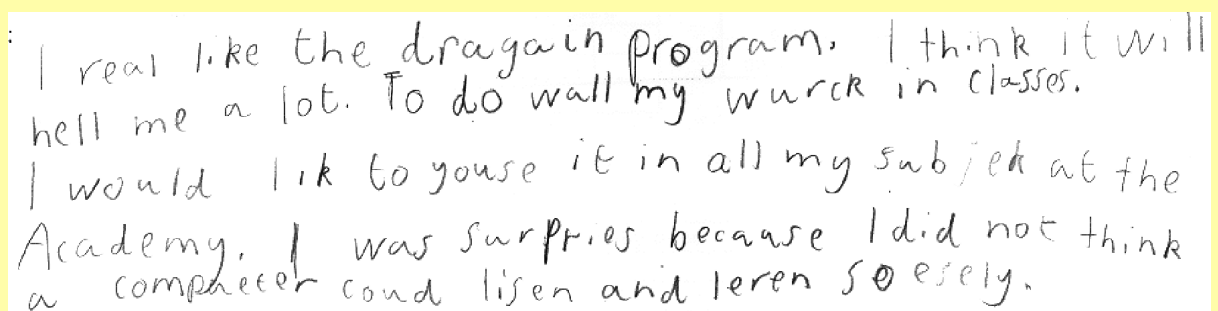 I real like the dragain program. I think it will
hell me a lot. To do wall my wurck in classes.
I would lik to youse it in all my subjek at the
Academy. I was surpries because I did not think
a comphecer coud lisen and leren so esely.